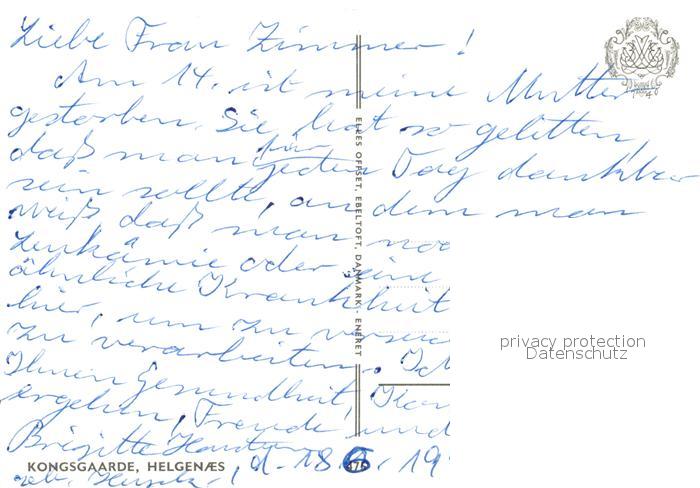 Liebe Frau Zimmer!
Am 14. ist meine Mutter
gestorben. Sie hat so gelitten,
daß man für jeden Tag dankbar
sein sollte, an dem man
weiß, daß man
Leukämie oder eine
ähnliche Krankheit
hier, um zu
zu verarbeiten.
Ihnen Gesundheit,
ergehen, Freude und
Brigitte
geb.
ELLES OFFSET, EBELTOFT, DANMARK - ENERET
KONGSGAARDE, HELGENÆS
privacy protection
Datenschutz